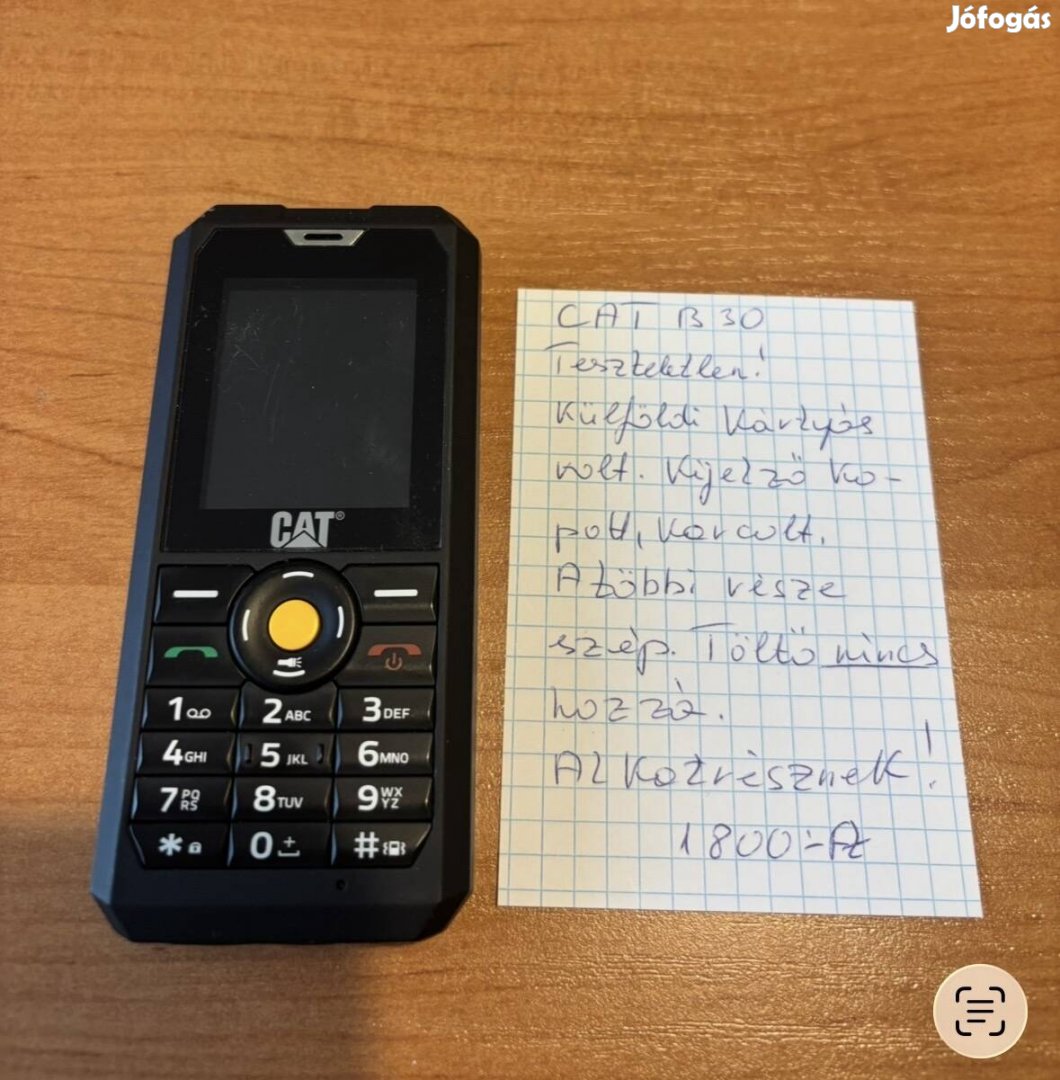 Jófogás
CAT®
1
2 ABC
3 DEF
4 GHI
5 JKL
6 MNO
7 PQRS
8 TUV
9 WXYZ
*
0 +
#
CAT B 30
Teszteletlen!
Külföldi Kártyás
volt. Kijelző Ko-
pott, karcolt.
A többi része
szép. Töltő nincs
hozzá.
Alkatrésznek!
1800.-Ft